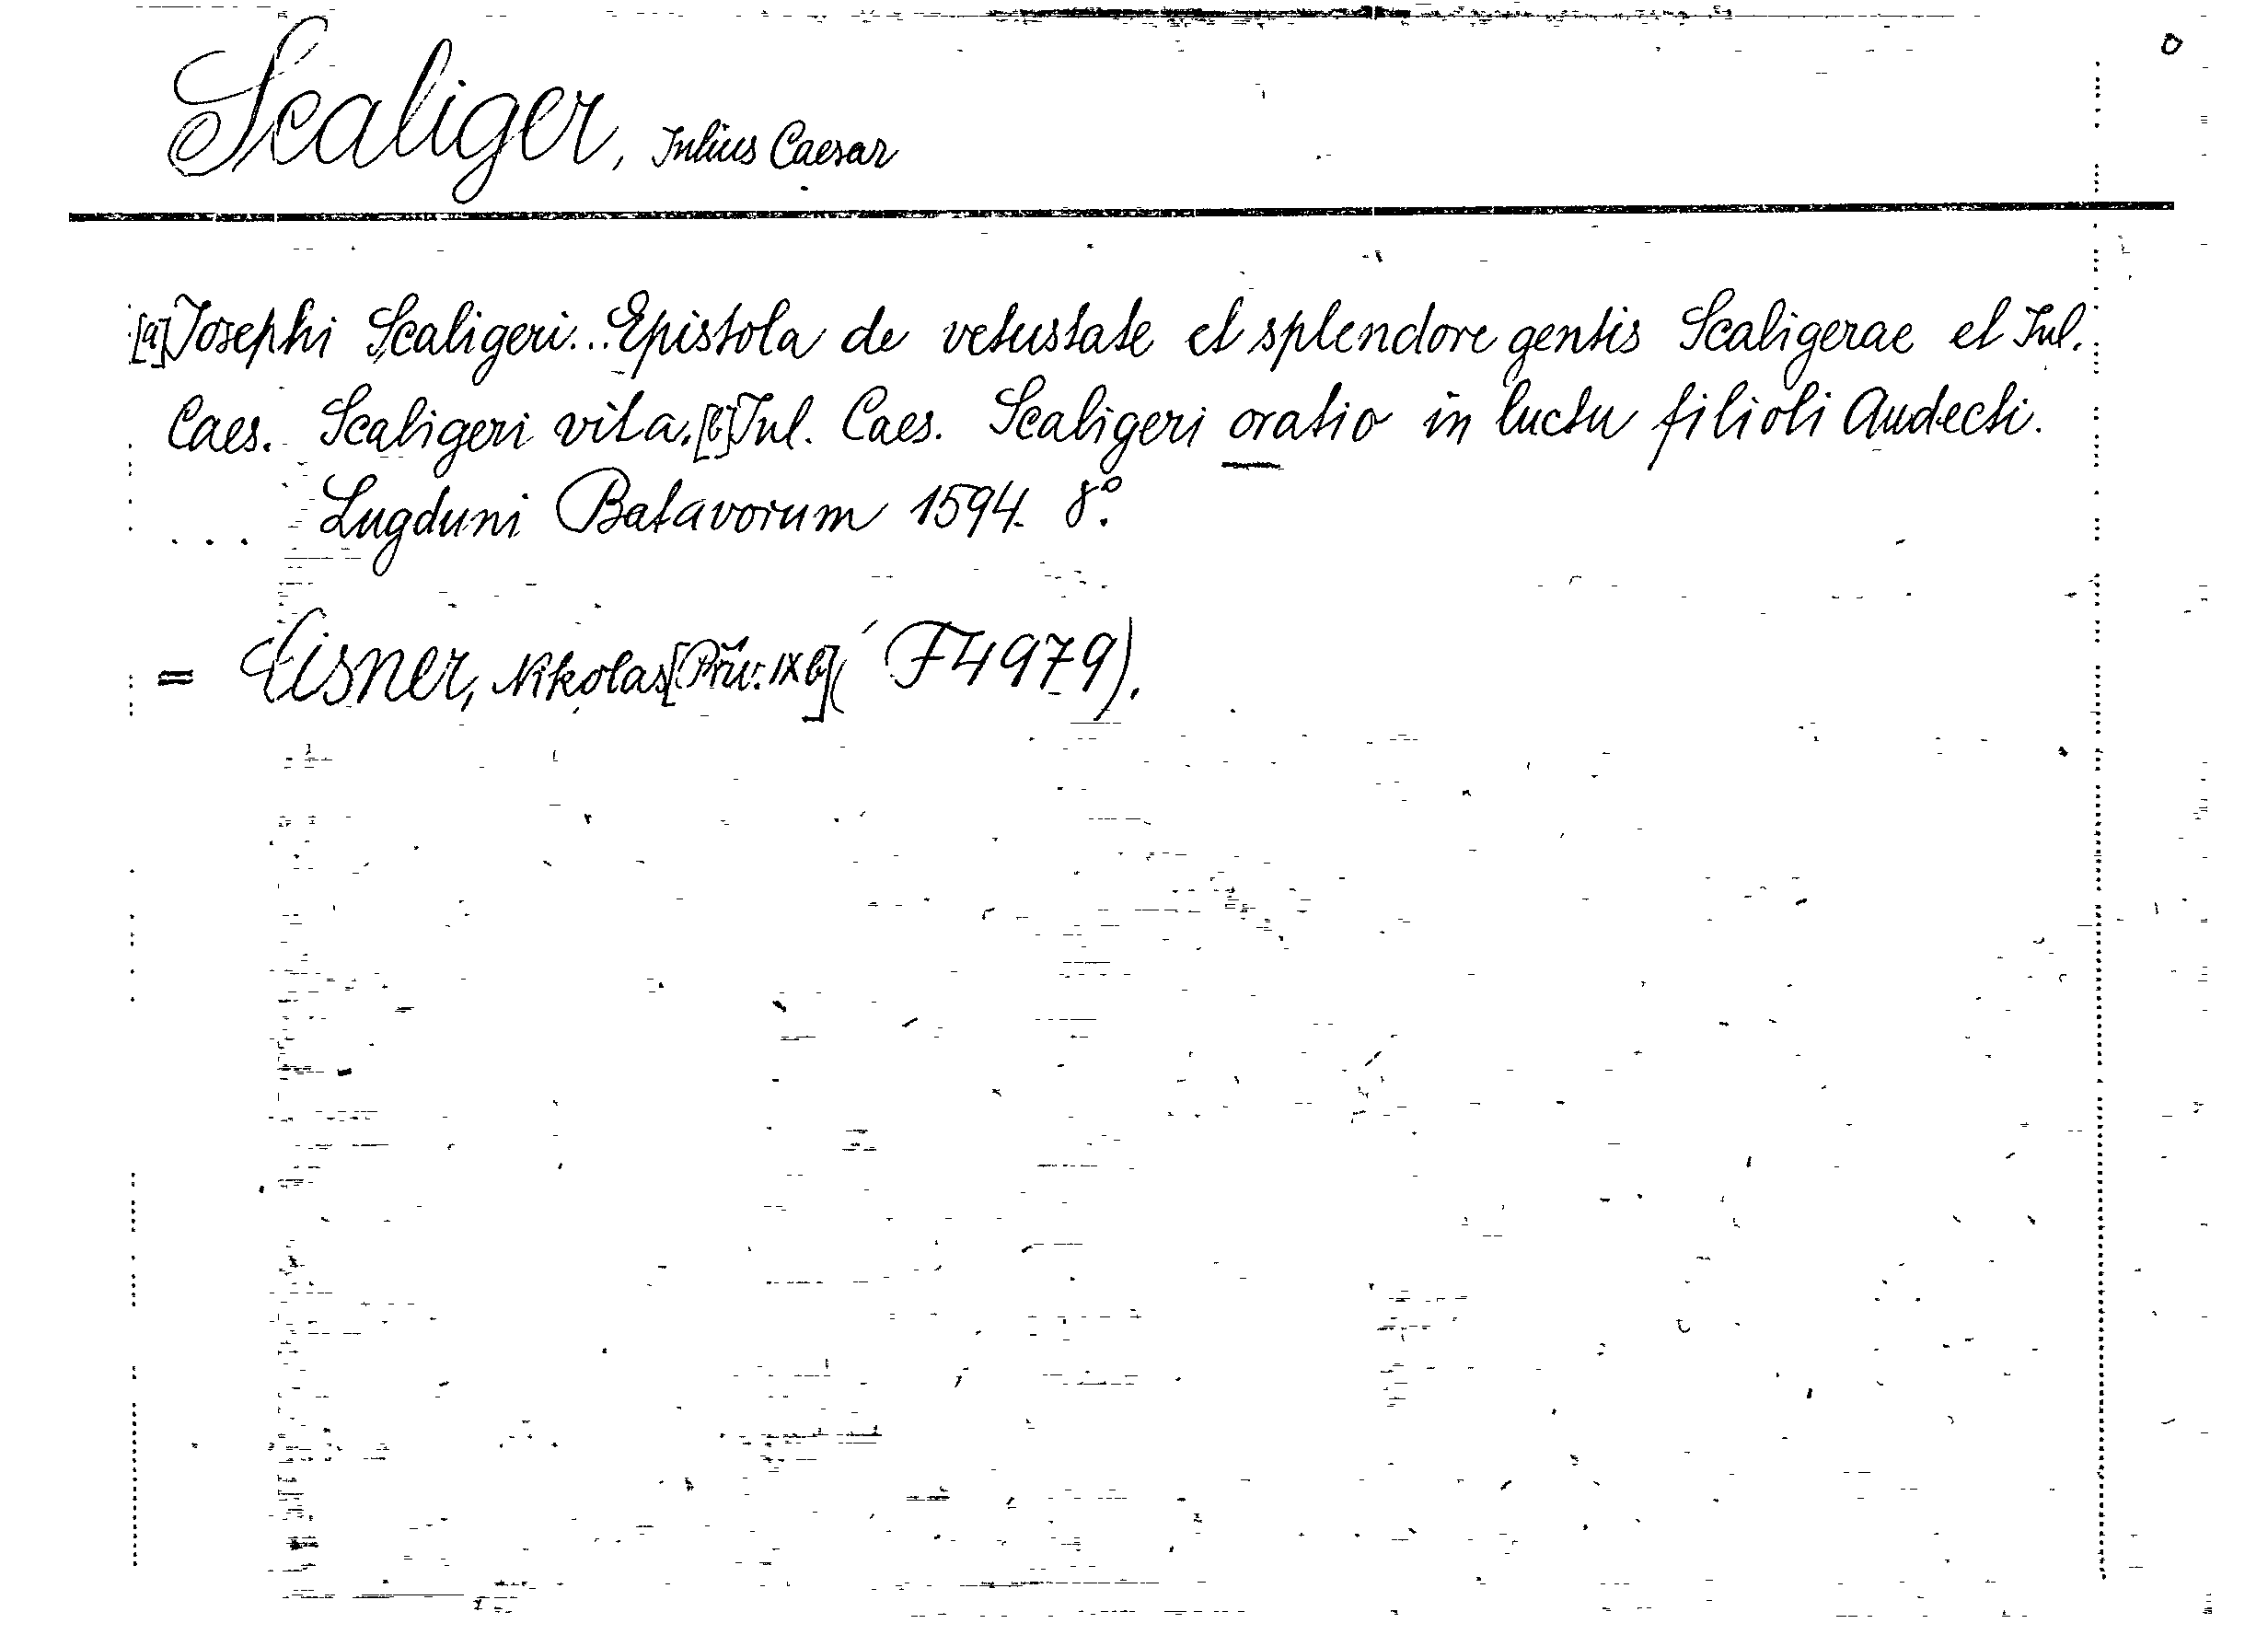 o
Scaliger, Iulius Caesar
[a] Iosephi Scaligeri... Epistola de vetustate et splendore gentis Scaligerae et Iul.
Caes. Scaligeri vita. [b] Iul. Caes. Scaligeri oratio in luctu filioli Audecti.
... Lugduni Batavorum 1594. 8°.
= Eisner, Nikolas [Přív. IX b] (F4979).